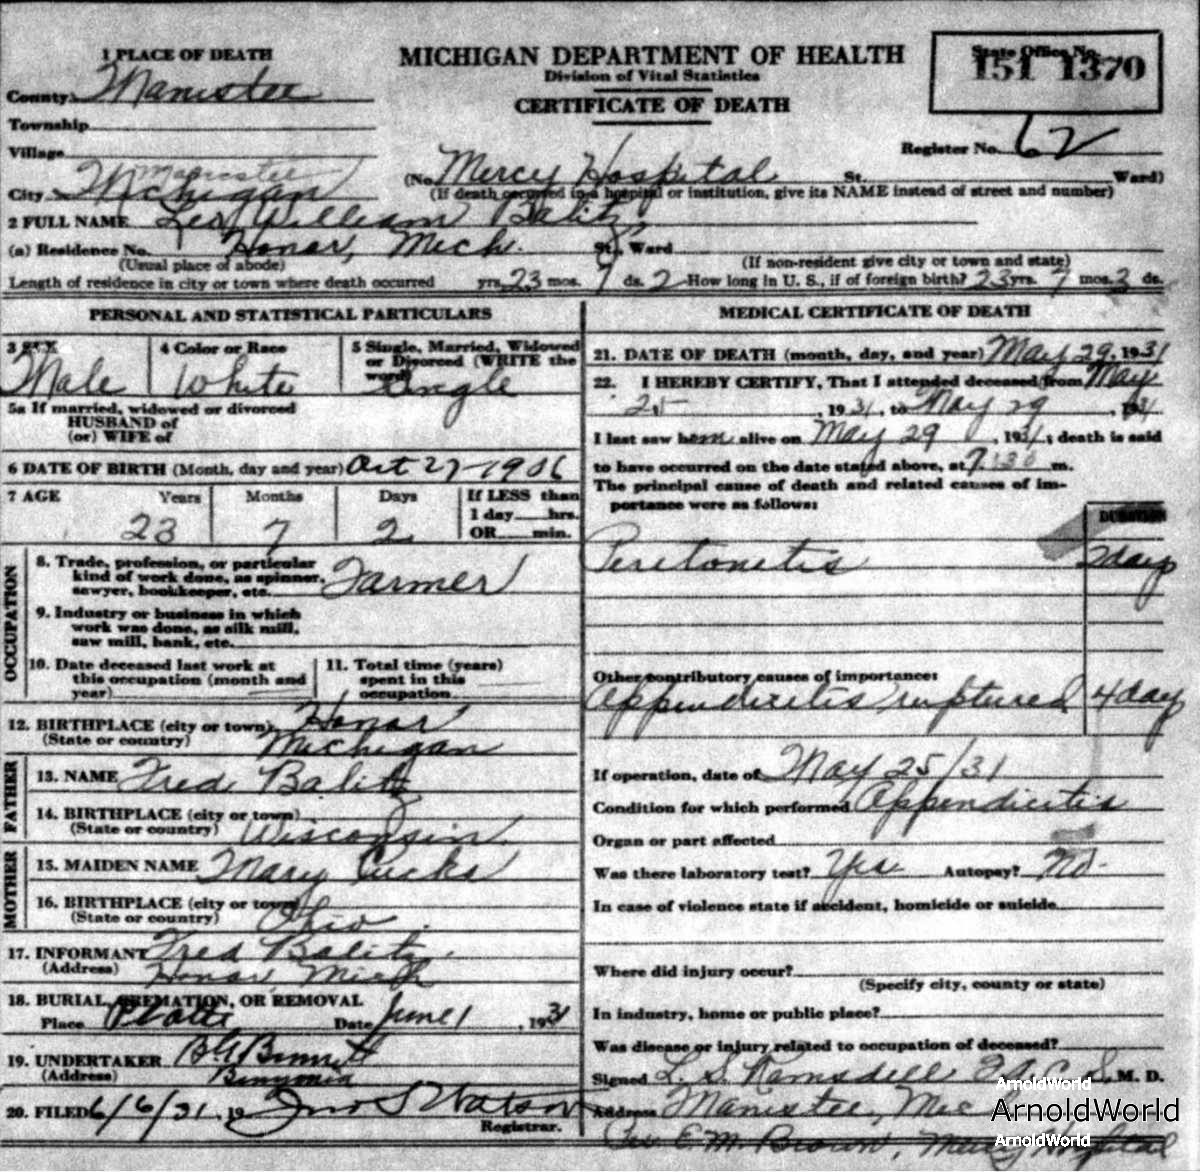 MICHIGAN DEPARTMENT OF HEALTH
Division of Vital Statistics
CERTIFICATE OF DEATH
State Office No.
151 1370
Register No. 62
1 PLACE OF DEATH
County Manistee
Township
Village
Manistee
City Michigan
(No. Mercy Hospital St. Ward)
(If death occurred in a hospital or institution, give its NAME instead of street and number)
2 FULL NAME Leo William Balitz
(a) Residence No. Honor, Mich. St., Ward
(Usual place of abode)
(If non-resident give city or town and state)
Length of residence in city or town where death occurred yrs. 23 mos. 7 ds. 2 How long in U. S., if of foreign birth? 23 yrs. 7 mos. 3 ds.
PERSONAL AND STATISTICAL PARTICULARS
3 SEX
Male
4 Color or Race
White
5 Single, Married, Widowed
or Divorced (WRITE the
word)
Single
5a If married, widowed or divorced
HUSBAND of
(or) WIFE of
6 DATE OF BIRTH (Month, day and year) Oct 27-1906
7 AGE Years Months Days If LESS than
1 day hrs.
23 7 2 OR min.
OCCUPATION
8. Trade, profession, or particular
kind of work done, as spinner,
sawyer, bookkeeper, etc. Farmer
9. Industry or business in which
work was done, as silk mill,
saw mill, bank, etc.
10. Date deceased last work at
this occupation (month and
year)
11. Total time (years)
spent in this
occupation
12. BIRTHPLACE (city or town) Honor
(State or country) Michigan
FATHER
13. NAME Fred Balitz
14. BIRTHPLACE (city or town)
(State or country) Wisconsin
MOTHER
15. MAIDEN NAME Mary
16. BIRTHPLACE (city or town)
(State or country) Ohio
17. INFORMANT Fred Balitz
(Address) Honor Mich
18. BURIAL, CREMATION, OR REMOVAL
Place Platte Date June 1, 1931
19. UNDERTAKER B G Bennett
(Address)
20. FILED 6/6/31 19 Jno S Watson
Registrar.
MEDICAL CERTIFICATE OF DEATH
21. DATE OF DEATH (month, day, and year) May 29, 1931
22. I HEREBY CERTIFY, That I attended deceased from May
25, 1931, to May 29, 1931
I last saw him alive on May 29, 1931; death is said
to have occurred on the date stated above, at 7:30 m.
The principal cause of death and related causes of im-
portance were as follows:
DURATION
Peretonetis 2 days
Other contributory causes of importance:
Appendicetis ruptured 4 days
If operation, date of May 25/31
Condition for which performed Appendicetis
Organ or part affected
Was there laboratory test? Yes Autopsy? No
In case of violence state if accident, homicide or suicide
Where did injury occur?
(Specify city, county or state)
In industry, home or public place?
Was disease or injury related to occupation of deceased?
Signed L. S. Ramsdell F.A.C.S., M. D.
Address Manistee, Mich
Per E. M. Brown, Mercy Hospital
ArnoldWorld
ArnoldWorld
ArnoldWorld